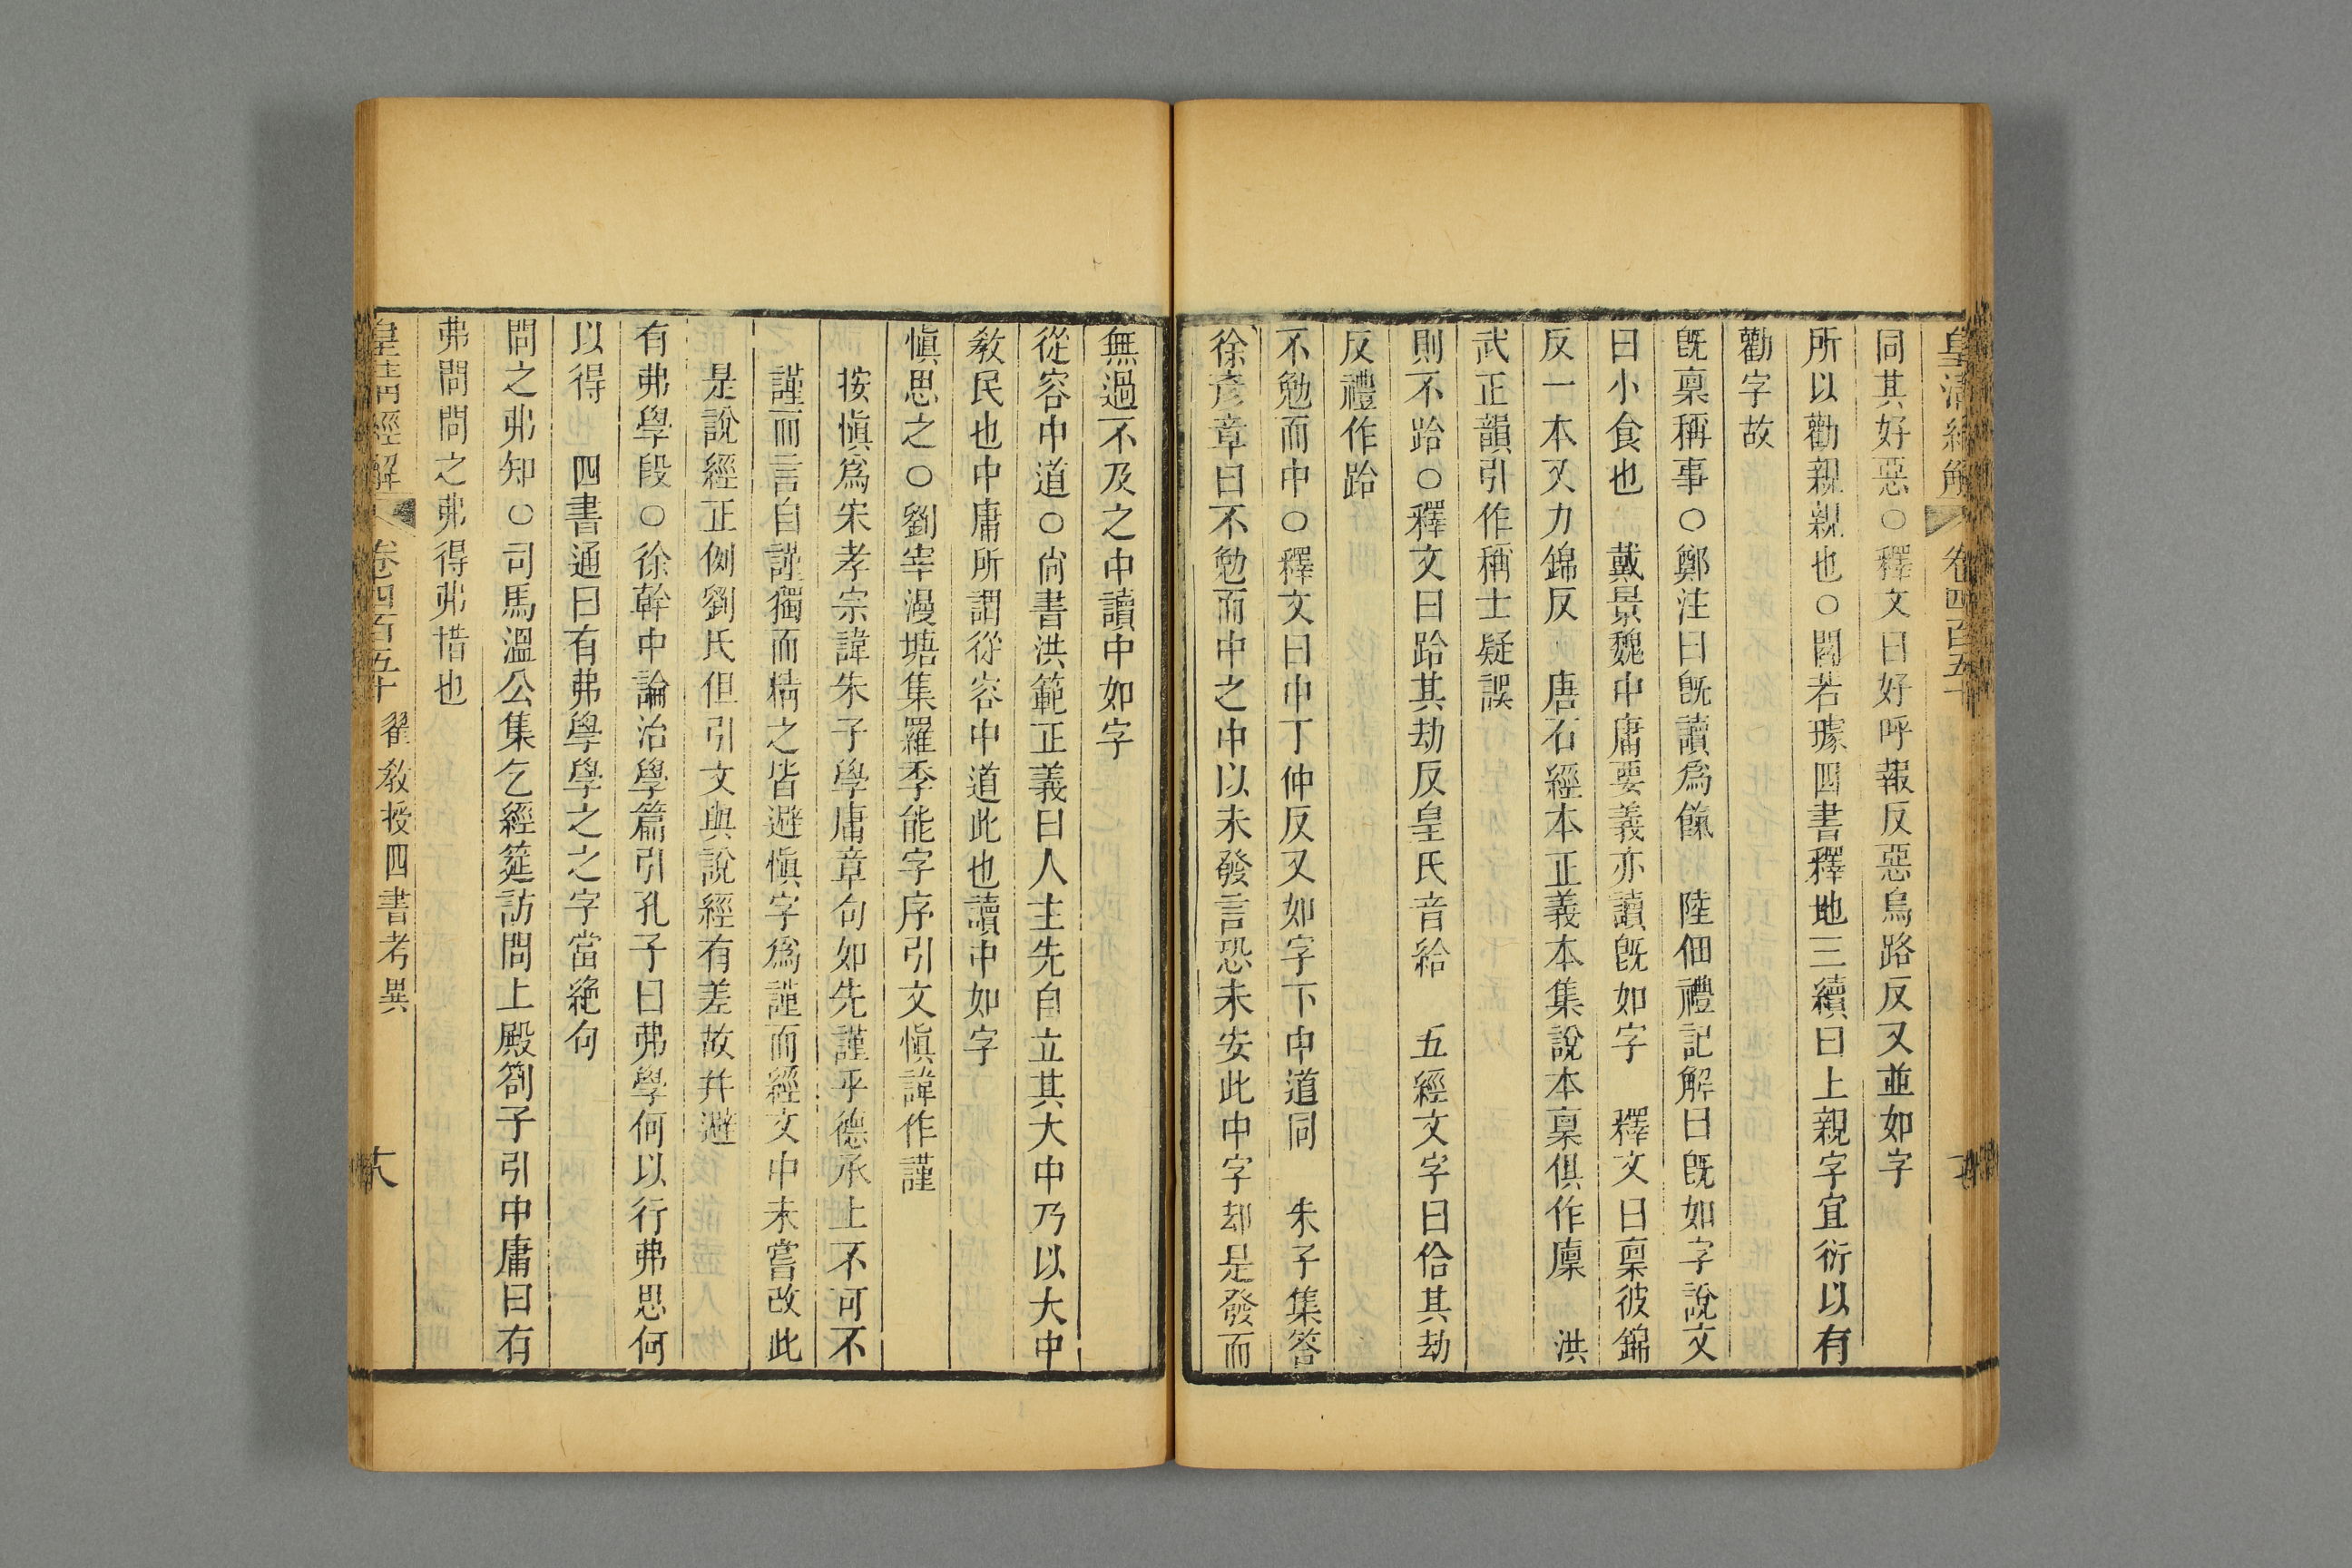 皇清經解 卷四百五十
同其好惡○釋文曰好呼報反惡烏路反又並如字
所以勸親親也○閻若璩四書釋地三續曰上親字宜衍以有
勸字故
旣稟稱事○鄭注曰旣讀爲餼 陸佃禮記解曰旣如字說文
曰小食也 戴景魏中庸要義亦讀旣如字 釋文曰稟彼錦
反一本又力錦反 唐石經本正義本集說本稟俱作廩 洪
武正韻引作稱士疑誤
則不跲○釋文曰跲其劫反皇氏音給 五經文字曰佮其劫
反禮作跲
不勉而中○釋文曰中丁仲反又如字下中道同 朱子集答
徐彥章曰不勉而中之中以未發言恐未安此中字却是發而
無過不及之中讀中如字
從容中道○尙書洪範正義曰人主先自立其大中乃以大中
敎民也中庸所謂從容中道此也讀中如字
愼思之○劉宰漫塘集羅季能字序引文愼諱作謹
按愼爲宋孝宗諱朱子學庸章句如先謹乎德承上不可不
謹而言自謹獨而精之皆避愼字爲謹而經文中未嘗改此
是說經正例劉氏但引文與說經有差故幷避
有弗學段○徐幹中論治學篇引孔子曰弗學何以行弗思何
以得 四書通曰有弗學學之之字當絶句
問之弗知○司馬溫公集乞經筵訪問上殿劄子引中庸曰有
弗問問之弗得弗惜也
皇清經解 卷四百五十 翟敎授四書考異 大